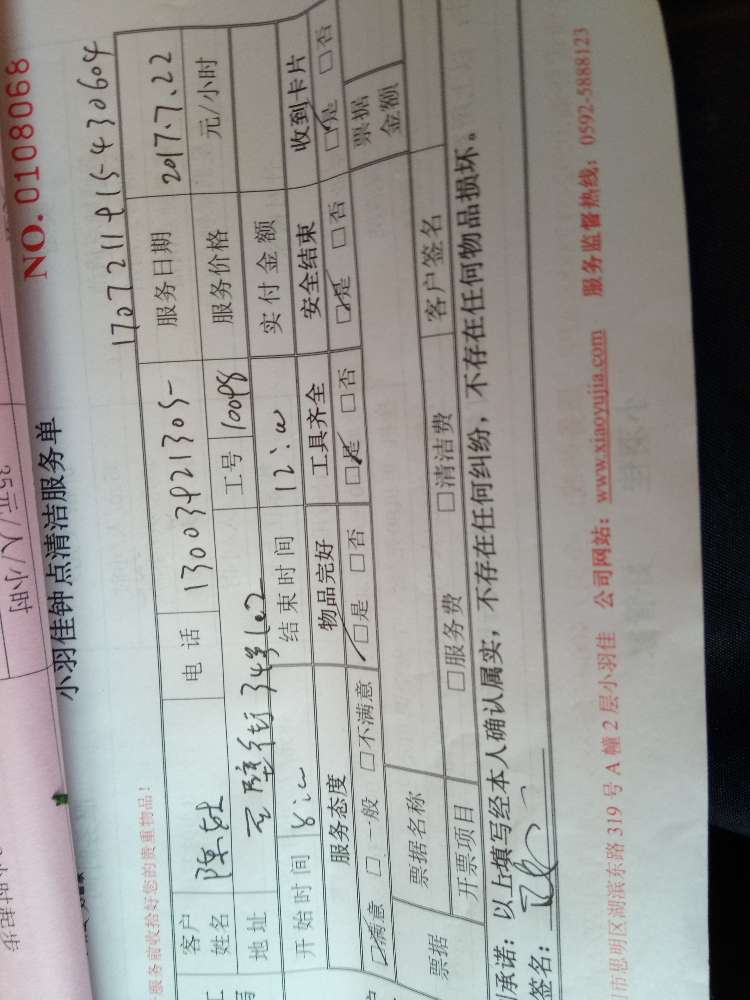 35元/人/小时
小羽佳钟点清洁服务单
NO. 0108068
服务前收拾好您的贵重物品!
客户姓名 陈 电话 13003921305 服务日期 2017.7.22
地址 34号 工号 10098 服务价格 元/小时
开始时间 8: 结束时间 12: 实付金额
服务态度 物品完好 工具齐全 安全结束 收到卡片
□满意 □一般 □不满意 □是 □否 □是 □否 □是 □否 □是 □否
票据 票据名称 票据金额
开票项目 □服务费 □清洁费 客户签名
承诺：以上填写经本人确认属实，不存在任何纠纷，不存在任何物品损坏。
签名：
市思明区湖滨东路 319 号 A 幢 2 层小羽佳 公司网站：www.xiaoyujia.com 服务监督热线：0592-5888123